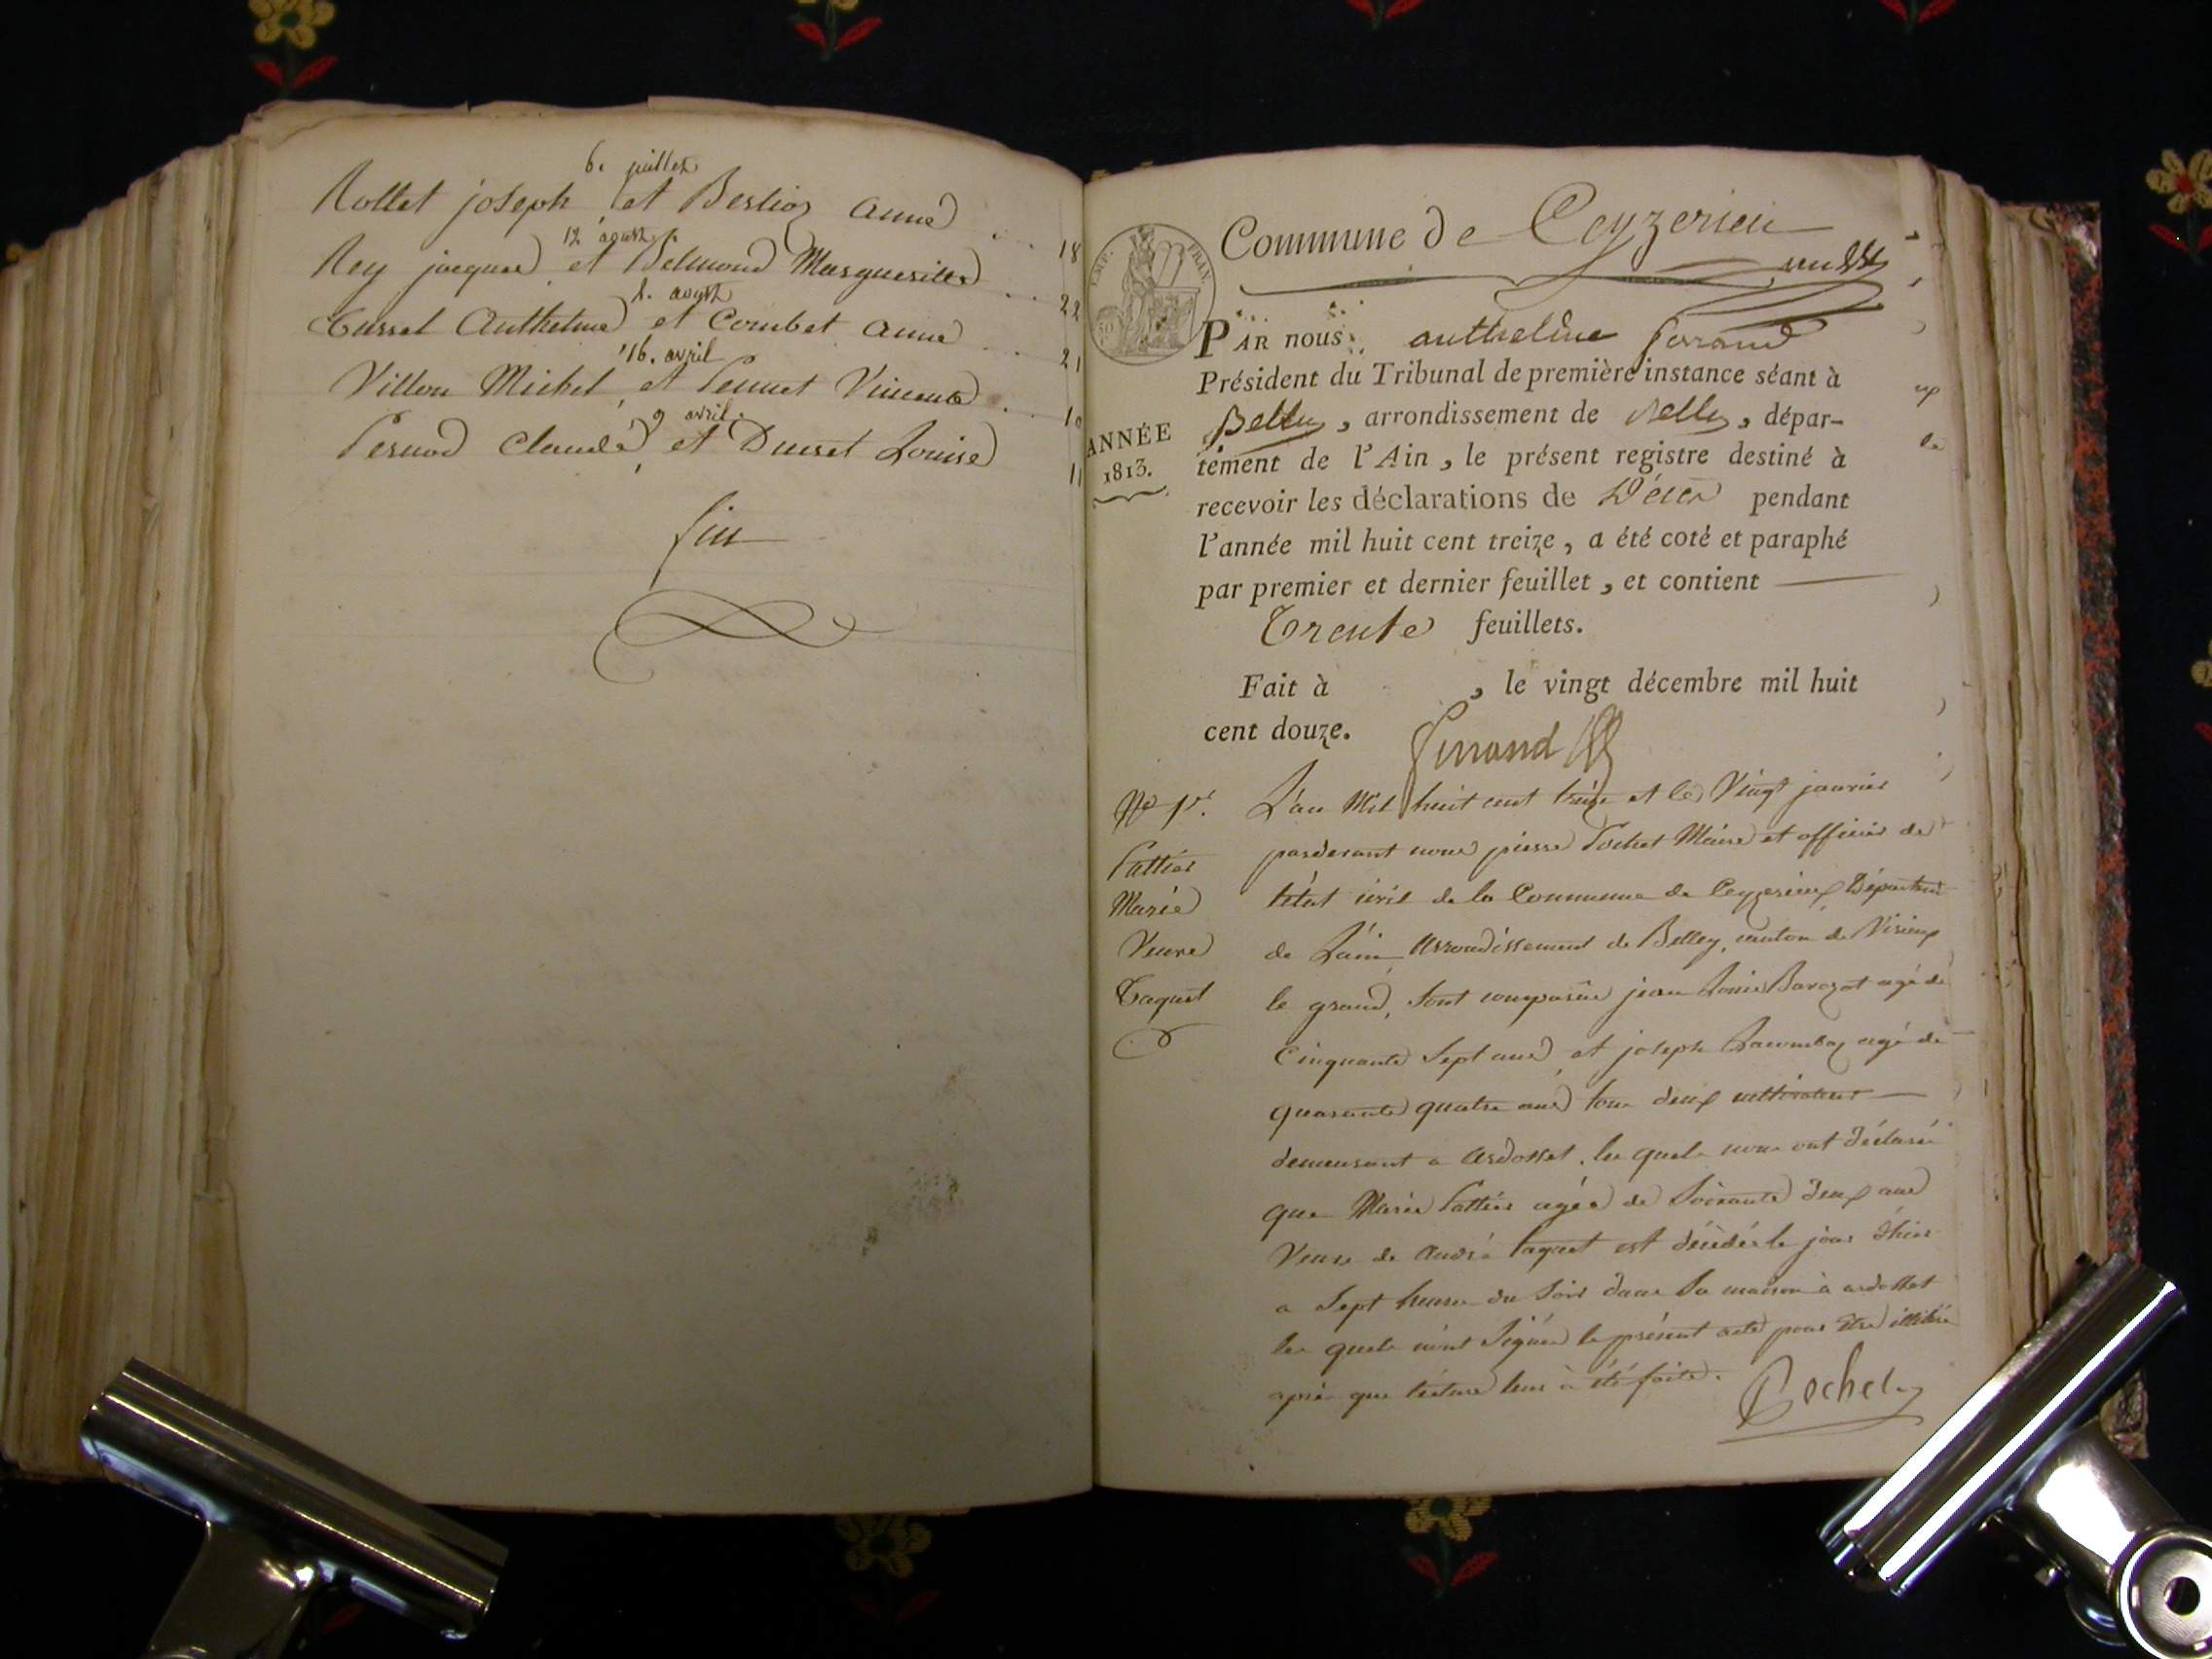 6. juillet
Rollet joseph et Berlioz anne ... 18
12 aoust
Rey jacques et Belmond Marguerite ... 22
1. aoust
Cusset Anthelme et Combet anne ... 21
16. avril
Villon Michel et Pennet Vincente ... 10
9 avril
Pernod Claude, et Duiset Louise 11
fin
Commune de Ceyzerieu
EMP. FRAN.
PAR nous anthelme ferrand
Président du Tribunal de première instance séant à
Belley, arrondissement de Belley, dépar-
ANNÉE
1813.
tement de l'Ain, le présent registre destiné à
recevoir les déclarations de Décès pendant
l'année mil huit cent treize, a été coté et paraphé
par premier et dernier feuillet, et contient
Trente feuillets.
Fait à , le vingt décembre mil huit
cent douze.
ferrand
No 1er.
Pattier
Marie
Veuve
Taquet
L'an Mil huit cent treize et le Vingt janvier
pardevant nous pierre Pochet Maire et officier de
létat civil de la Commune de Ceyzerieux Département
de Lain Arrondissement de Belley, canton de Virieux
le grand, sont comparus jean Louis Barozat agé de
Cinquante Sept ans, et joseph agé de
quarante quatre ans tous deux cultivateurs
demeurant a Ardosset, les quels nous ont déclaré
que Marie Pattier agée de Soixante deux ans
Veuve de André taquet est décédée le jour d'hier
a Sept heures du Soir dans Sa maison à ardosset
les quels n'ont Signé le présent acte pour être illitérés
après que lecture leur à été faite.
Pochet